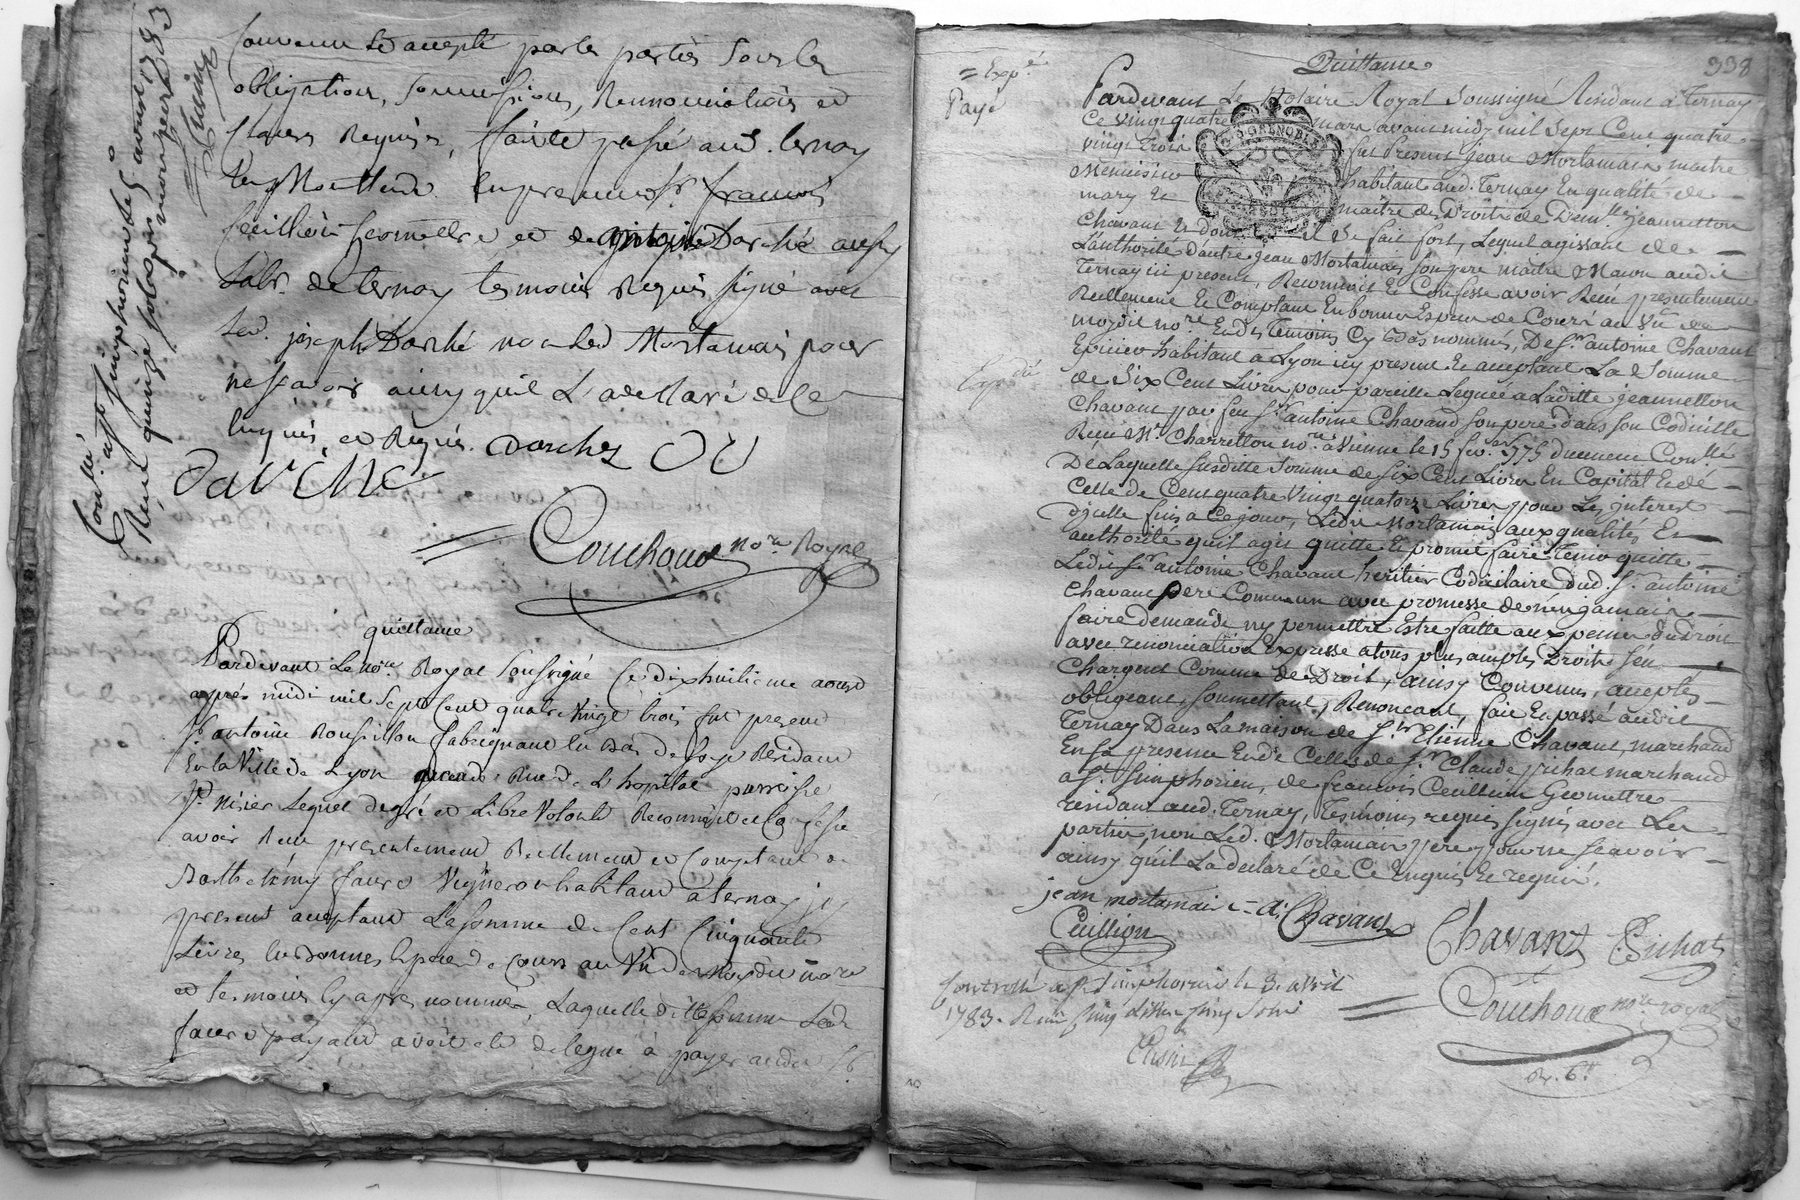 Convenu et accepté par les parties sous les
obligations, soumissions, Renonciations et
clauses Requises, fait et passé aud. ternay
en presence de sr. francois
geometre et de Darché aussy
habt. de ternay temoins Requis signé avec
led. joseph Darché non led Mortamais pour
ne scavoir ainsy quil L'a declaré de ce
Enquis, et Requis. Darchez
DarChe
= Couchoud nore Royal
Controllé a st simphorien le 5 avout 1783
Reçu quinze sols
quittance
Pardevant Le nore. Royal soussigné Ce dix huitieme aoust
après midi mil sept cent quatre Vingt trois fut present
sr antoine Roussillon fabriquant en bas de soye Residant
En la Ville de Lyon grande Rue de L'hopital parroisse
st nizier Lequel de gré et Libre Volonté Reconnoit et Confesse
avoir Reçu presentement Reellement et Comptant de
Barthelemy faure Vigneron habitant a ternay icy
present acceptant La somme de Cent Cinquante
Livres en bonnes especes de cours au Vu de moydit nore
et temoins cy apres nommes, Laquelle ditte somme Led.
faure payant avoit eté delegué à payer audit sr.
338
Quittance
= Expé.
Payé
Pardevant Le Notaire Royal soussigné Residant a Ternay
Ce vingt quatre mars avant midy mil sept Cent quatre
vingt trois fut Present jean Mortamais maitre
Menuisier habitant aud. Ternay En qualité de
mary et maitre des Droits de Demlle. jeannetton
Chavant et dont il se fait fort, Lequel agissant de
L'authorité d'autre jean Mortamais son pere maitre Maçon audit
Ternay ici present, Reconnoit Et Confesse avoir Reçu presentement
Reellement Et Comptant En bonnes Especes de Cours au Vu de
moydit nore. Et des Temoins Cy bas nommés, De sr. antoine Chavant
Epicier habitant a Lyon icy present Et acceptant La Somme
Expédié
de Six Cent Livres pour pareille Leguée a Laditte jeannetton
Chavant par feu sr. antoine Chavand son pere dans son Codicille
Reçu Me. Charretton nore. a Vienne le 15 fevr. 1775 duement Conllé
De Laquelle susditte somme de six Cent Livres En Capital Et dé
Celle de Cent quatre Vingt quatorze Livres pour Les interest
dicelle suis a Ce jour, Ledit Mortamais aux qualités Et
authorité quil agit quitte Et promet faire tenir quitte
Ledit sr. antoine Chavant heritier Codicilaire dud. sr. antoine
Chavant pere Commun avec promesse de n'en jamais
faire demande ny permettre Estre faitte aux peines du droit
avec renonciation Expresse a tous plus amples Droits s'en
Chargeant Comme de Droit, ainsy Convenus, acceptés
obligeant, soumettant, Renonçant, fait Et passé audit
Ternay Dans La maison de sr. Etienne Chavant, marchand
En sa presence Et de Celle de sr. Claude pichat marchand
a st. simphorien, de francois Ceuillion Geomettre
residant aud. Ternay, Tesmoins requis signés avec Les
parties, non Led. Mortamais pere pour ne sçavoir
ainsy quil La declaré de Ce Enquis Et requis.
jean mortamais = A: Chavant
Ceuillion Chavant C Pichat
= Couchoud nore royal
Controllé a st simphorien le 3. avril
1783. Reçu